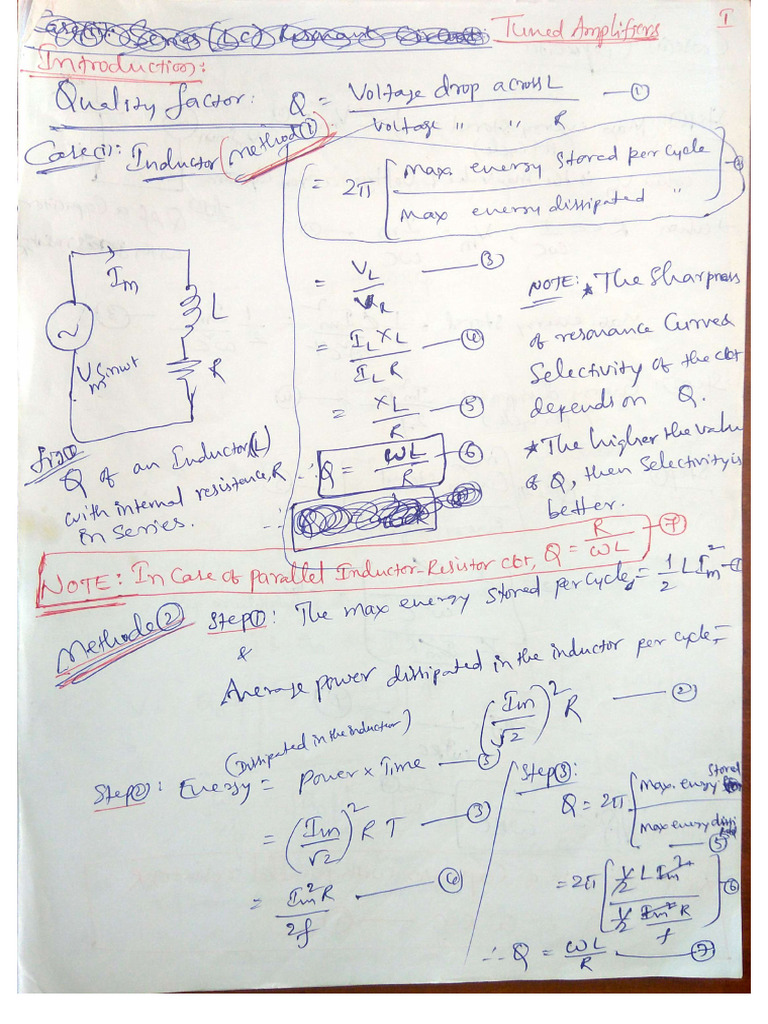 Case(i): Series (LC) Resonant Circuit: Tuned Amplifiers I
Introduction:
Quality factor: Q = Voltage drop across L / Voltage " " R — ①
Case(i): Inductor Method(1)
= 2π [Max. energy stored per cycle / Max energy dissipated "] — ②
= VL / VR — ③
= IL XL / IL R — ④
= XL / R — ⑤
∴ Q = ωL / R — ⑥
Im
L
R
Vm Sinωt
fig①
Q of an Inductor(L)
with internal resistance, R
in Series.
NOTE: * The Sharpness
of resonance Curve &
Selectivity of the ckt
depends on Q.
* The higher the value
of Q, then Selectivity is
better.
NOTE: In Case of parallel Inductor-Resistor ckt, Q = R / ωL — ⑦
Methode② Step①: The max energy stored per cycle = 1/2 L Im² — ①
&
Average power dissipated in the inductor per cycle =
(Im/√2)² R — ②
(Dissipated in the inductor)
Step②: Energy = Power × Time — ③
= (Im/√2)² R T — ③
= Im² R / 2f — ④
Step③:
Q = 2π [Max. energy Stored / Max energy dissi] — ⑤
= 2π [1/2 L Im² / 1/2 Im² R / f] — ⑥
∴ Q = ωL / R — ⑦